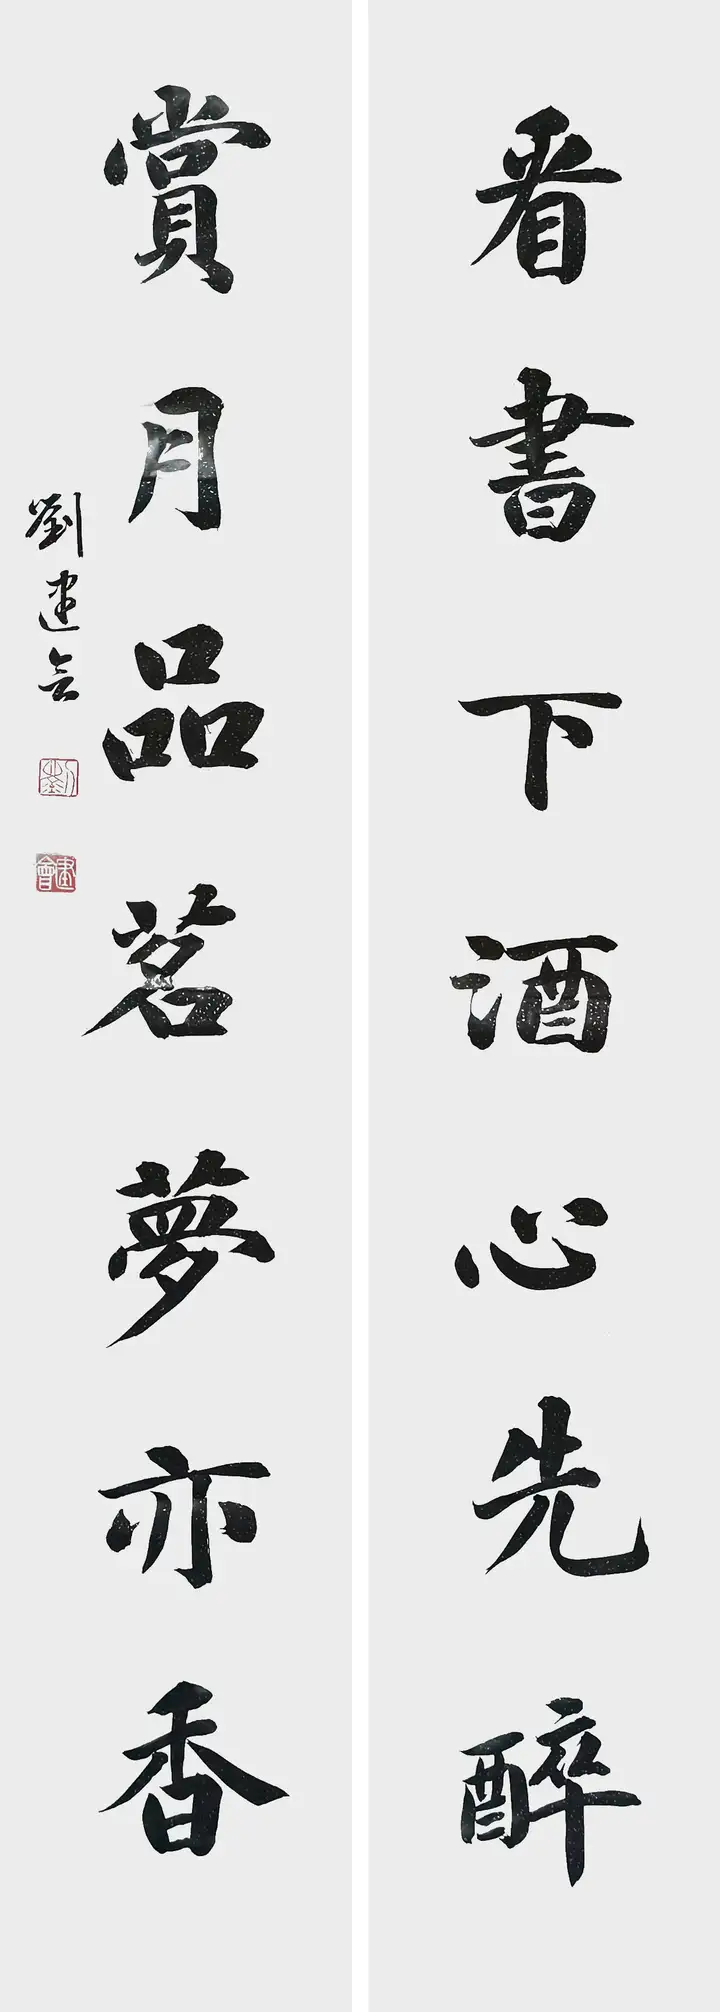 看書下酒心先醉
賞月品茗夢亦香
劉建会
劉
建會